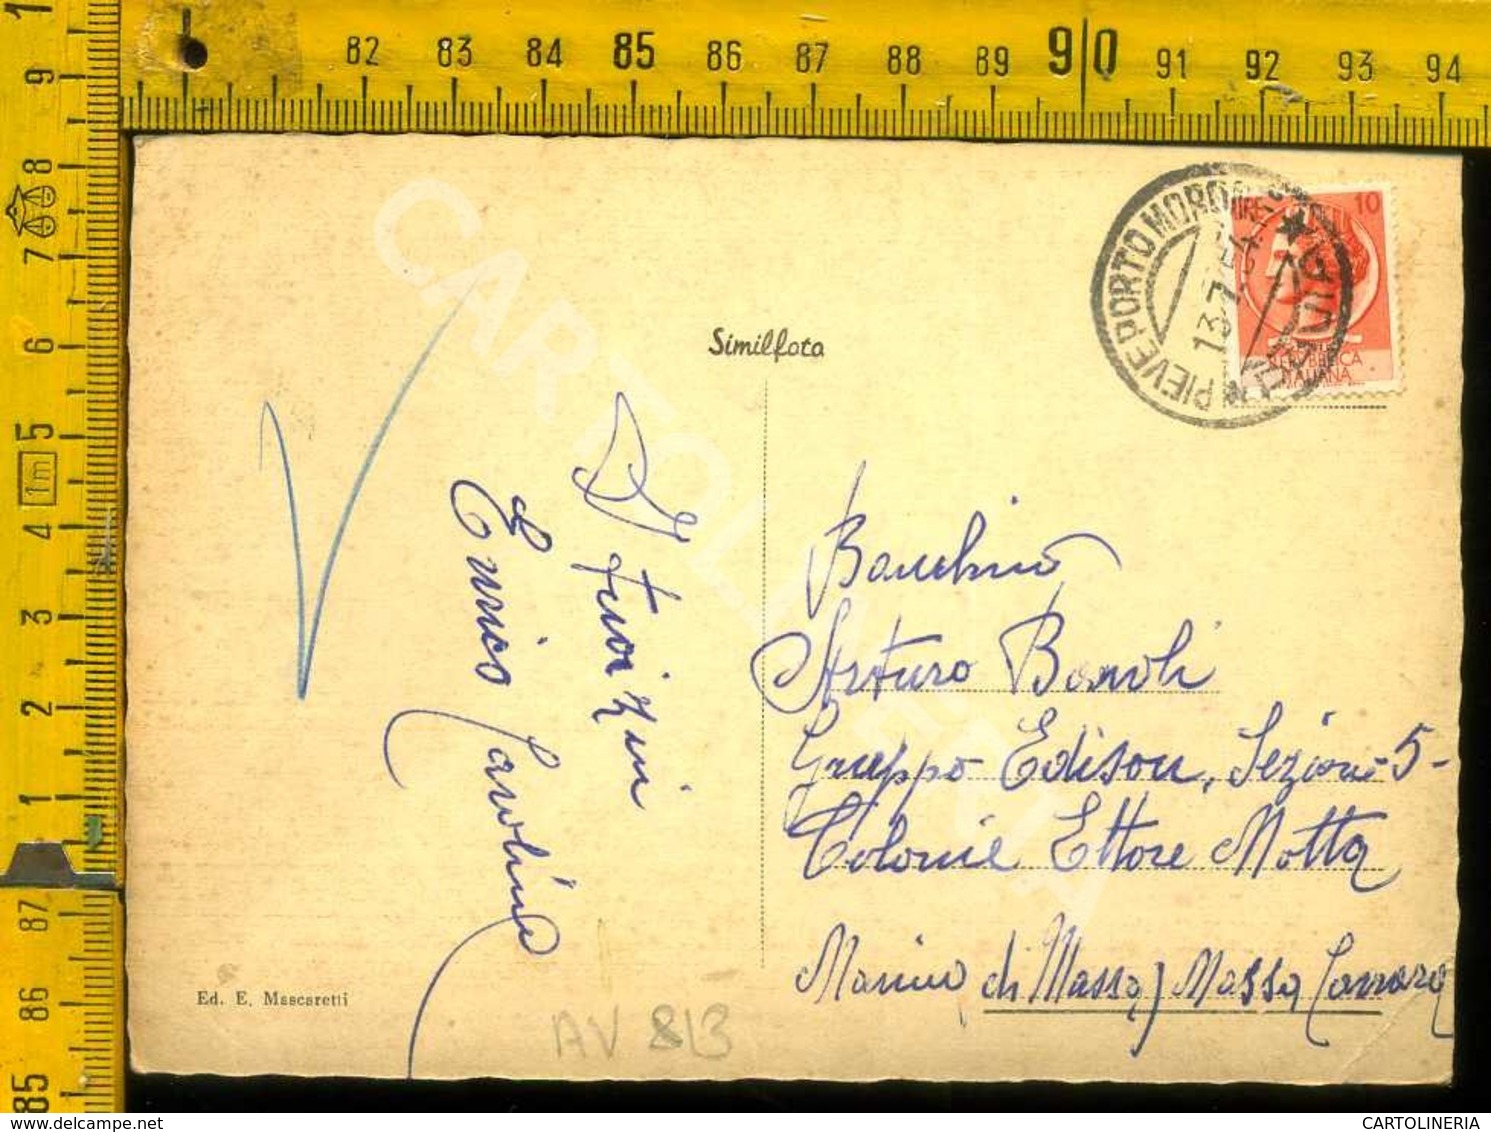 82 83 84 85 86 87 88 89 90 91 92 93 94
1
9
8
7
6
5
1m
4
3
2
1
87
86
85
CARTOLINERIA
PIEVE PORTO MORONE
13.7.54
PAVIA
10
REPUBBLICA
ITALIANA
Similfoto
Enrico Carolina
Bambino
Arturo Bonoli
Gruppo Edison, Sezione 5-
Colonie Ettore Motta
Marina di Massa) Massa Carrara
Ed. E. Mascaretti
AV 813
delcampe.net
CARTOLINERIA